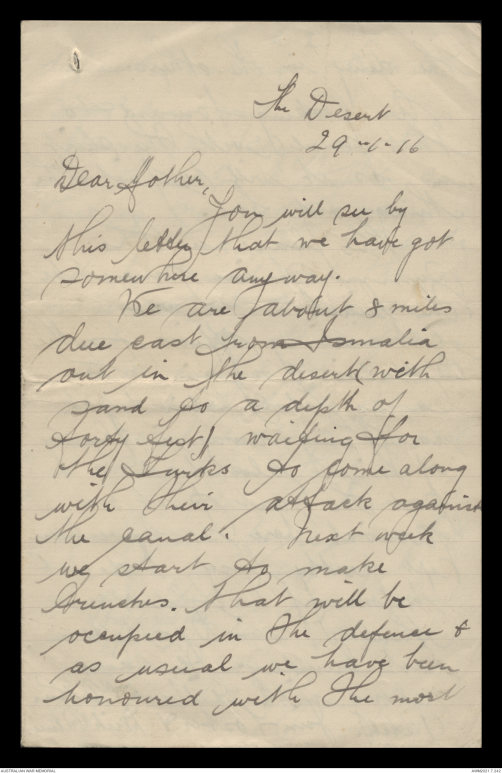 The Desert
29-1-16
Dear Mother,
You will see by
this letter that we have got
somewhere anyway.
We are about 8 miles
due east from Ismalia
out in the desert (with
sand to a depth of
forty feet) waiting for
the Turks to come along
with their attack against
the canal. Next week
we start to make
trenches. that will be
occupied in the defence &
as usual we have been
honoured with the most
AUSTRALIAN WAR MEMORIAL